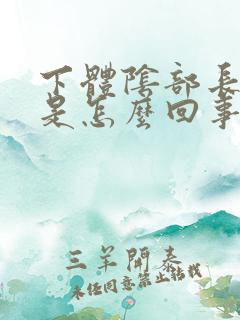 下體陰部長
是怎麼回事
三羊開泰
未经同意禁止转载